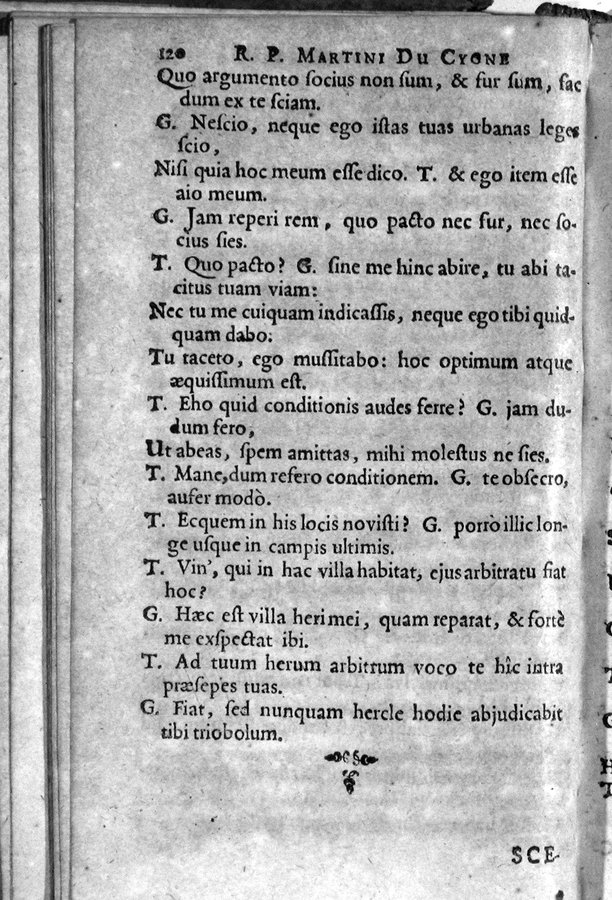 120 R. P. MARTINI DU CYGNE
Quo argumento ſocius non ſum, & fur ſum, fac
dum ex te ſciam.
G. Neſcio, neque ego iſtas tuas urbanas leges
ſcio,
Niſi quia hoc meum eſſe dico. T. & ego item eſſe
aio meum.
G. Jam reperi rem, quo pacto nec fur, nec ſo-
cius ſies.
T. Quo pacto? G. ſine me hinc abire, tu abi ta-
citus tuam viam:
Nec tu me cuiquam indicaſſis, neque ego tibi quid-
quam dabo:
Tu taceto, ego muſſitabo: hoc optimum atque
æquiſſimum eſt.
T. Eho quid conditionis audes ferre? G. jam du-
dum fero,
Ut abeas, ſpem amittas, mihi moleſtus ne ſies.
T. Mane, dum refero conditionem. G. te obſecro,
aufer modò.
T. Ecquem in his locis noviſti? G. porrò illic lon-
ge uſque in campis ultimis.
T. Vin', qui in hac villa habitat, ejus arbitratu fiat
hoc?
G. Hæc eſt villa heri mei, quam reparat, & fortè
me exſpectat ibi.
T. Ad tuum herum arbitrum voco te hîc intra
præſepes tuas.
G. Fiat, ſed nunquam hercle hodie abjudicabit
tibi triobolum.
SCE-